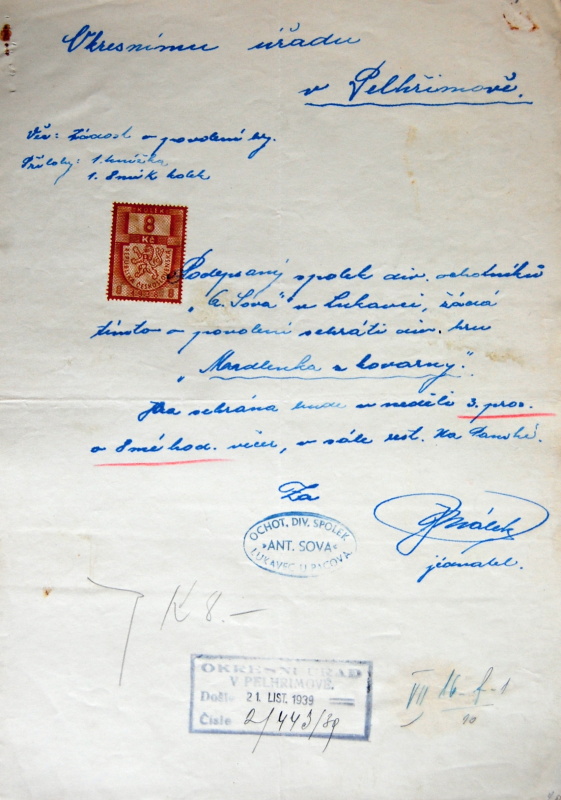 Okresnímu úřadu
v Pelhřimově.
Věc: Žádost o povolení hry.
Přílohy: 1. knížka
1. 8mi K kolek
KOLEK
8
Kč
8 8
Podepsaný spolek div. ochotníků
„A. Sova" v Lukavci, žádá
tímto o povolení sehráti div. hru
„Mandlenka z kovárny".
Hra sehrána bude v neděli 3. pros.
o 8mé hod. večer, v sále rest. Na
Za
OCHOT. DIV. SPOLEK
»ANT. SOVA«
LUKAVEC U PACOVA
jednatel.
K 8.—
OKRESNÍ ÚŘAD
V PELHŘIMOVĚ.
Došlo 21. LIST. 1939
Číslo 2/443/89
VII 16-f-1